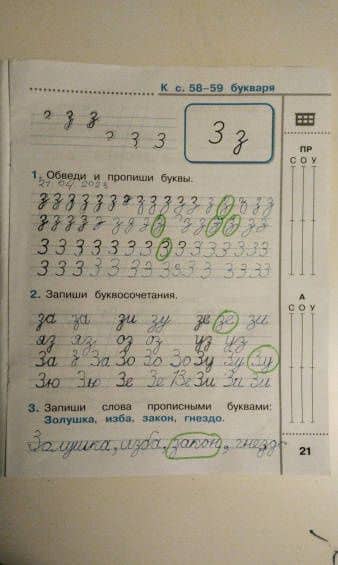 К с. 58–59 букваря
З з
ПР
С О У
1. Обведи и пропиши буквы.
21 04 2023
2. Запиши буквосочетания.
за за зи зу зе зе зи
яз яз оз оз уз уз
За З За Зо Зо Зо Зу Зу Зу
Зю Зю Зе Зе Зе Зи Зи Зи
А
С О У
3. Запиши слова прописными буквами:
Золушка, изба, закон, гнездо.
Золушка, изба, закон, гнездо
21